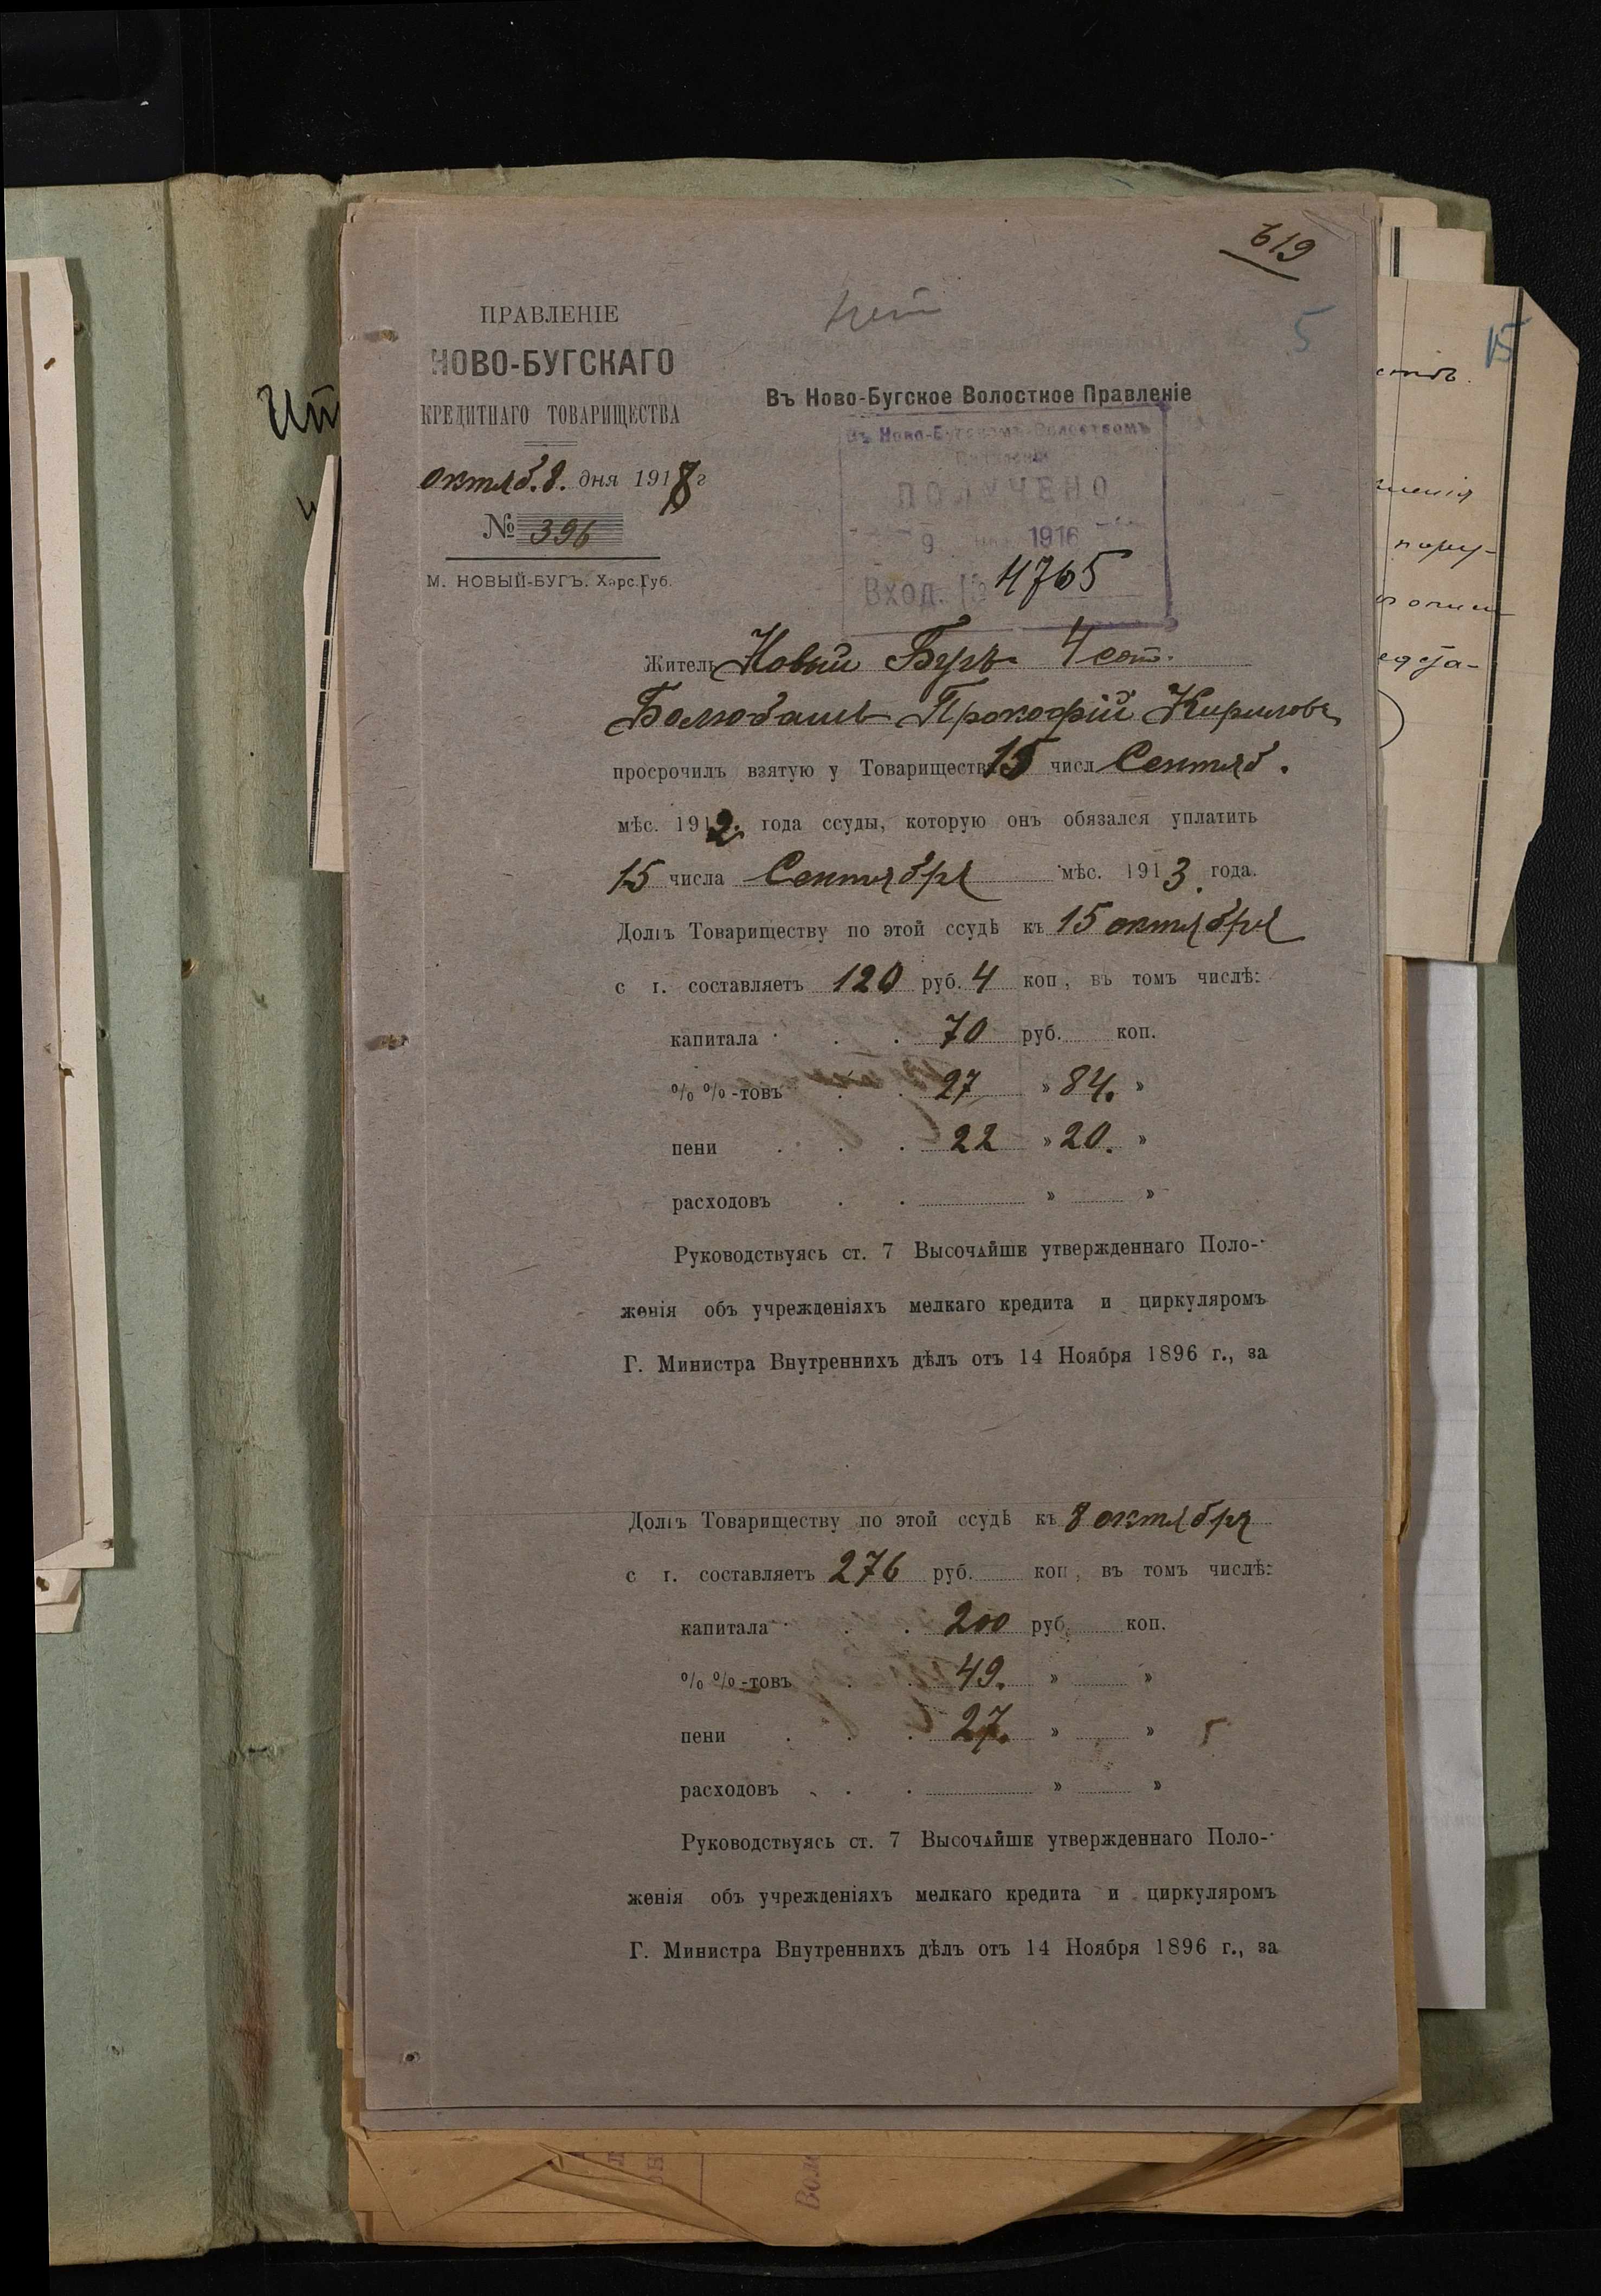 619
5
15
ПРАВЛЕНІЕ
НОВО-БУГСКАГО
КРЕДИТНАГО ТОВАРИЩЕСТВА
октяб. 8. дня 191 г
№ 396
М. НОВЫЙ-БУГЪ. Херс. Губ.
Въ Ново-Бугское Волостное Правленіе
Въ Ново-Бугскомъ Волостномъ
Правленіи
ПОЛУЧЕНО
9 1916
Вход. № 4765
Житель Новый Бугъ 4 сот.
Прокофій Кирилловъ
просрочилъ взятую у Товариществ 15 числ Сентяб.
мѣс. 1912. года ссуды, которую онъ обязался уплатить
15 числа Сентября мѣс. 1913. года.
Долгъ Товариществу по этой ссудѣ къ 15 октября
с г. составляетъ 120 руб. 4 коп, въ томъ числѣ:
капитала . . 70 руб. коп.
% % -товъ . . 27 » 84. »
пени . . . 22 » 20. »
расходовъ . . » »
Руководствуясь ст. 7 Высочайше утвержденнаго Поло-
женія объ учрежденіяхъ мелкаго кредита и циркуляромъ
Г. Министра Внутреннихъ дѣлъ отъ 14 Ноября 1896 г., за
Долгъ Товариществу по этой ссудѣ къ 8 октября
с г. составляетъ 276 руб. коп, въ томъ числѣ:
капитала . . 200 руб. коп.
% % -товъ . . 49. » »
пени . . . 27. » »
расходовъ . . » »
Руководствуясь ст. 7 Высочайше утвержденнаго Поло-
женія объ учрежденіяхъ мелкаго кредита и циркуляромъ
Г. Министра Внутреннихъ дѣлъ отъ 14 Ноября 1896 г., за